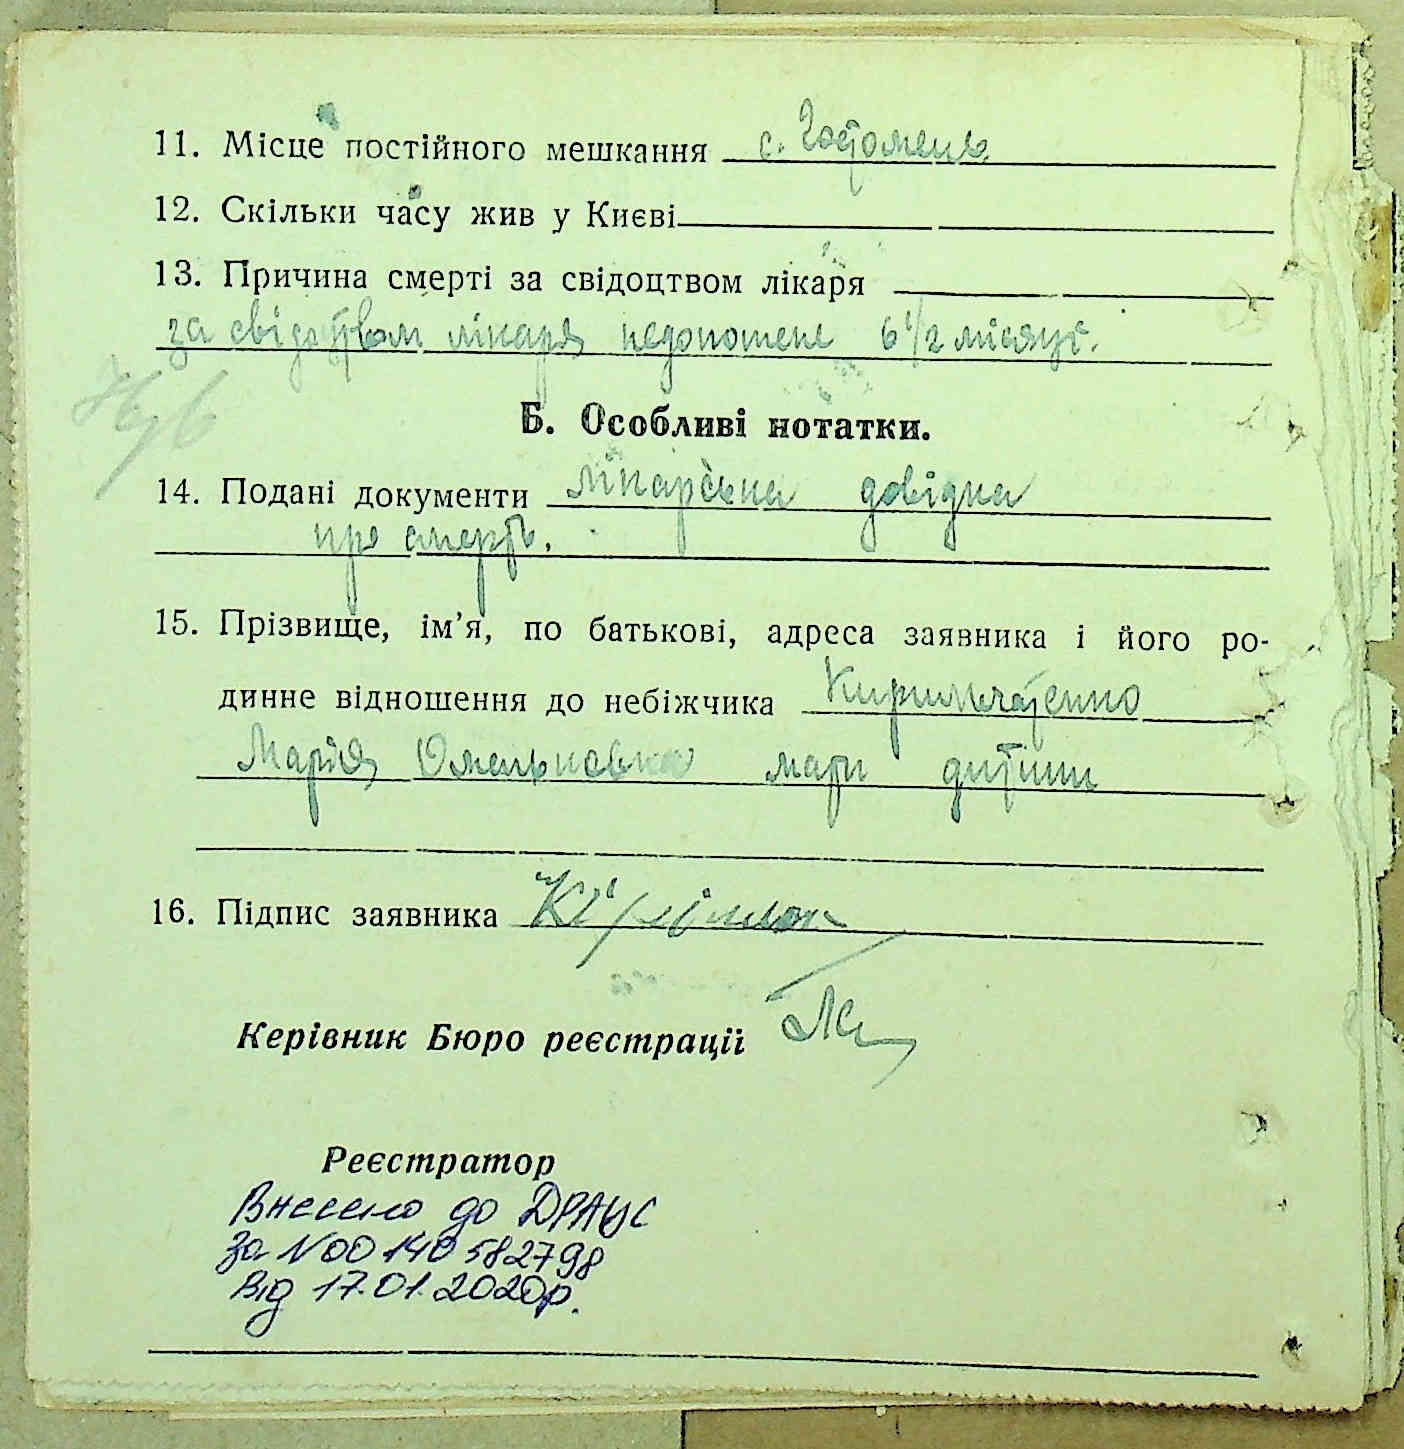 11. Місце постійного мешкання с. Гостомель
12. Скільки часу жив у Києві
13. Причина смерті за свідоцтвом лікаря
за свідоцтвом лікаря недоношене 6 1/2 місяці.
Б. Особливі нотатки.
14. Подані документи лікарська довідка
про смерть.
15. Прізвище, ім’я, по батькові, адреса заявника і його ро-
динне відношення до небіжчика
Марія Омельковна мати дитини
16. Підпис заявника
Керівник Бюро реєстрації
Реєстратор
Внесено до ДРАЦС
за N 00140582798
від 17.01.2020р.